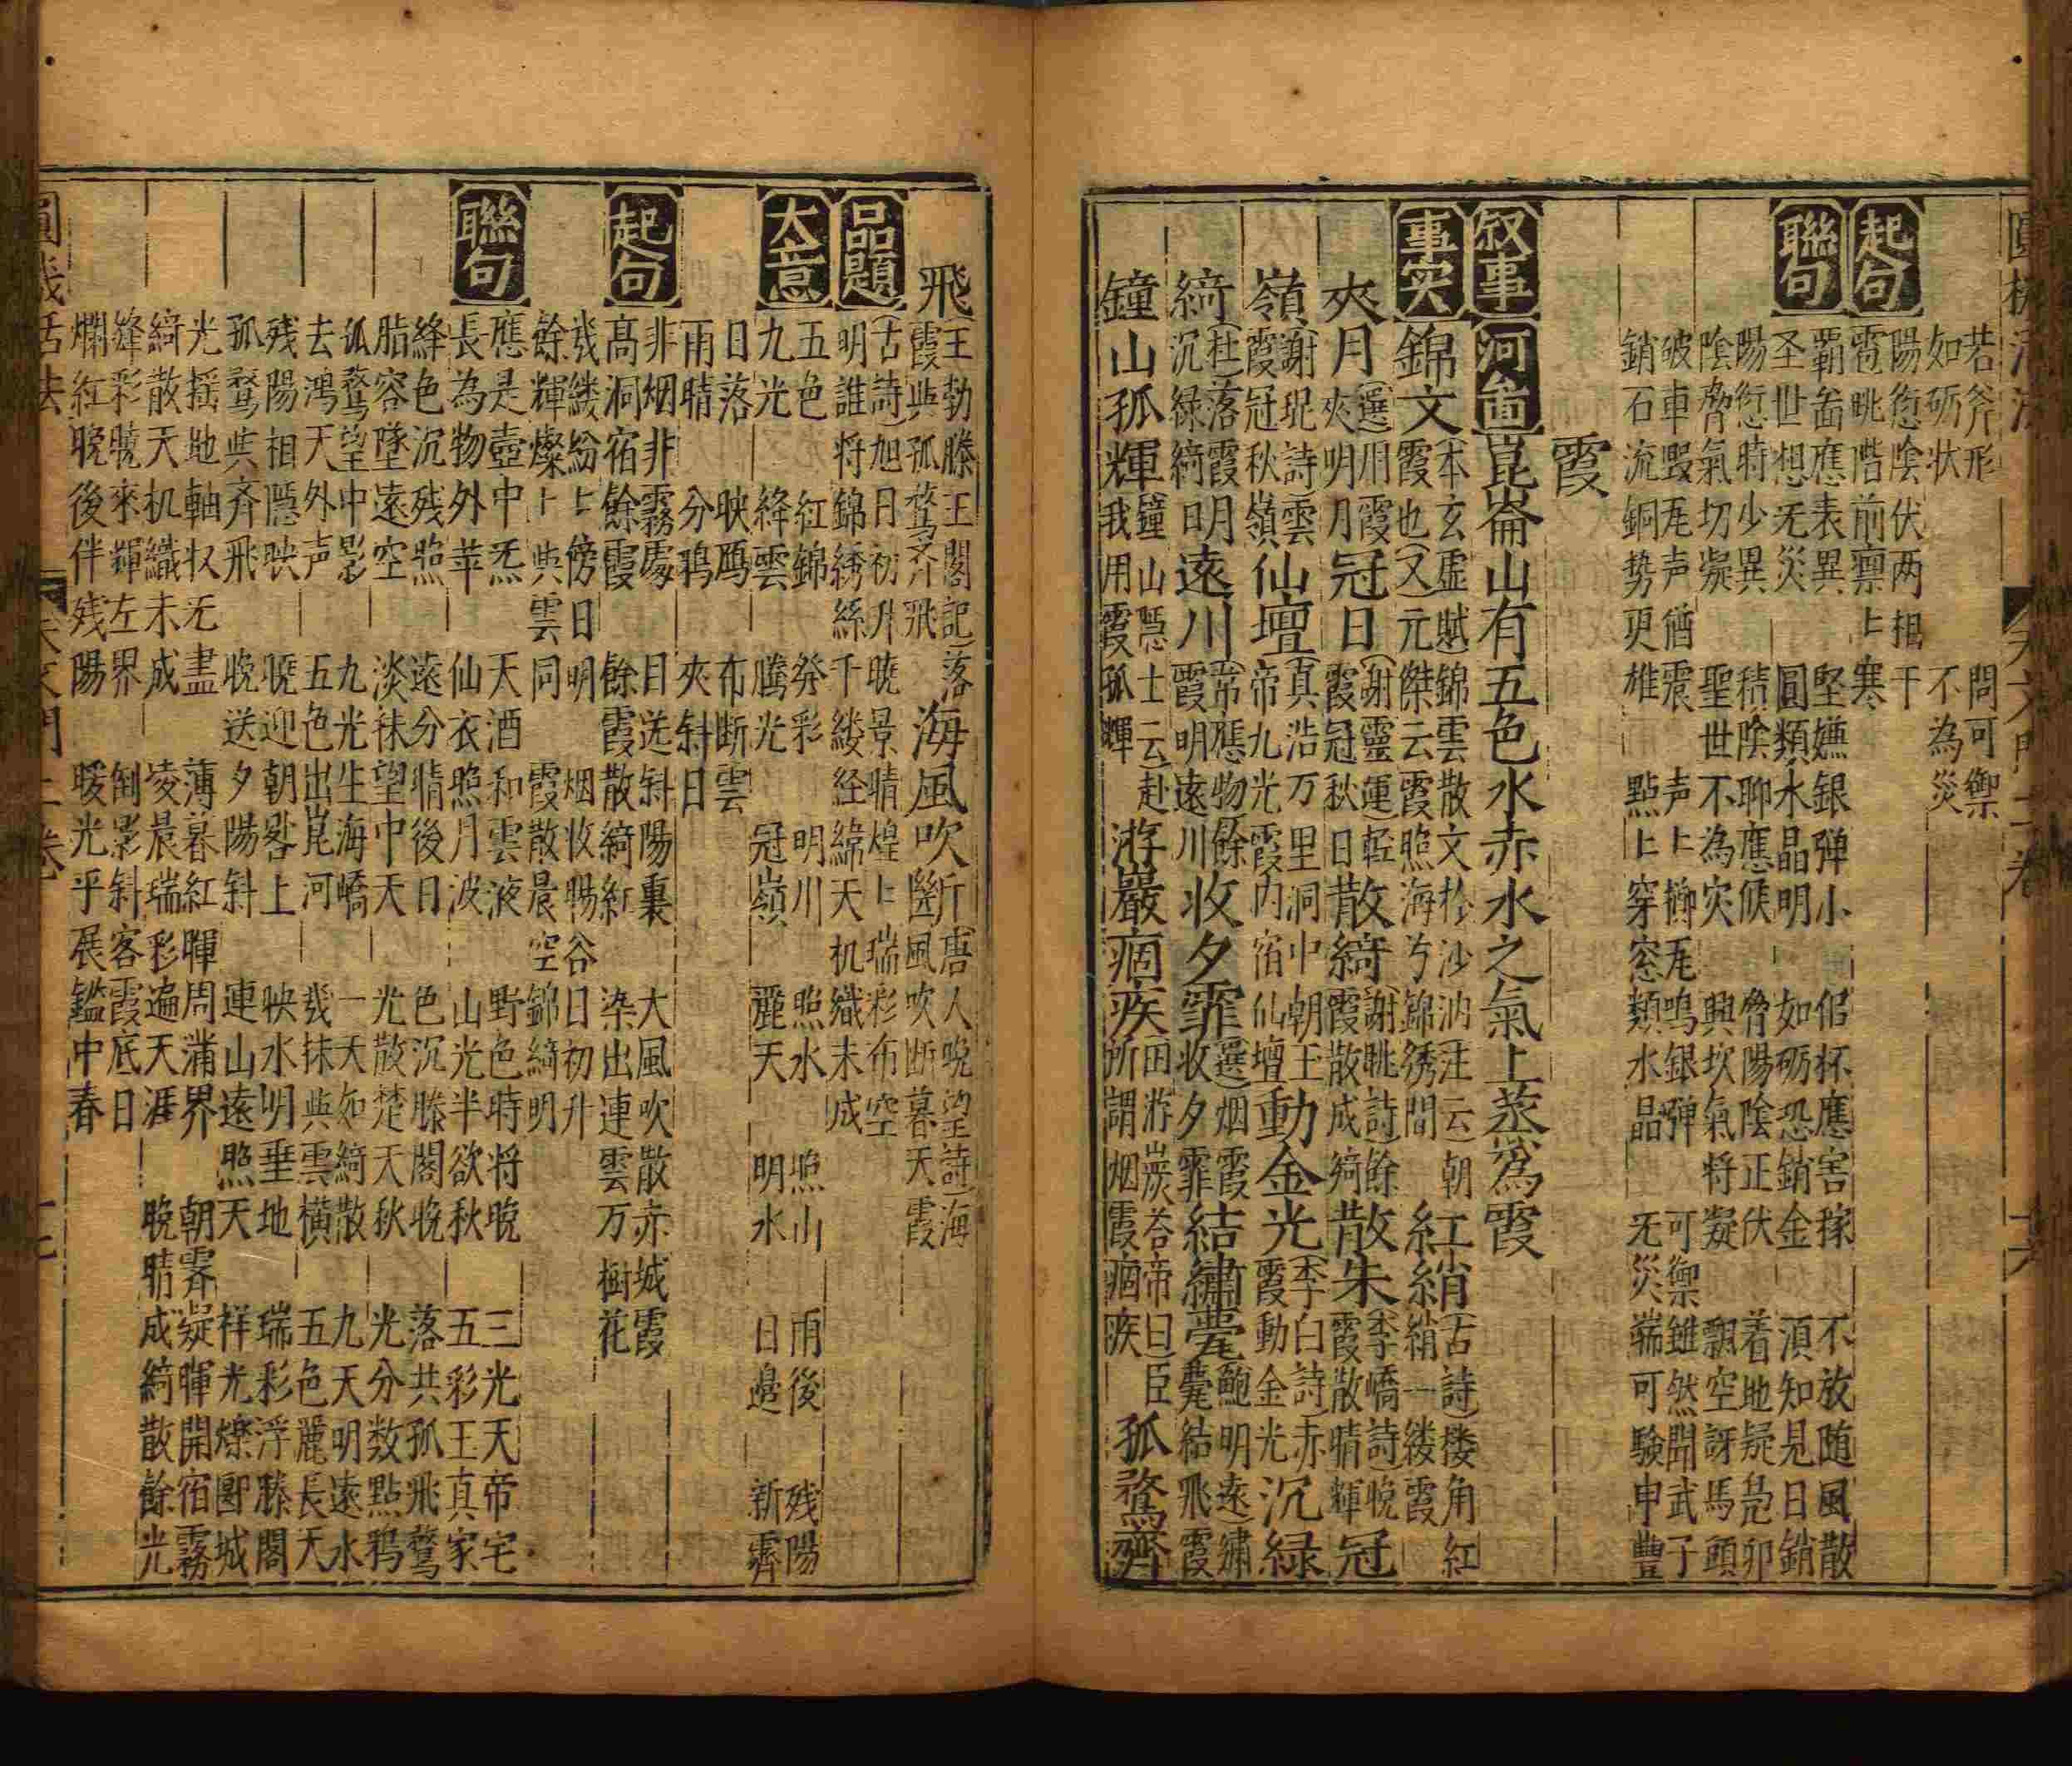 若斧形　問可禦
如砺状　不為災
起句　陽愆陰伏两相干
雹眺階前凛上寒
聯句　覇啚應表異　堅嫌銀弹小　侣杯應害稼　不放随風散
圣世想无災　圓類水晶明　如砺恐銷金　湏知見日銷
陽愆時少異　積陰聊應候　脅陽陰正伏　着地疑凫卵
陰脅氣切凝　聖世不為灾　興坎氣将凝　飄空訝馬頭
破車毁瓦声酋震　声上擲瓦鳴銀弹　可禦雖然聞武子
銷石流銅势更椎　點上穿窓類水晶　无災端可験申豐
霞
叙事　河啚　崑崙山有五色水赤水之氣上蒸為霞
事实　錦文　(本玄虚賦)錦雲散文於沙汭(注云)朝霞也(又)元傑云霞照海兮錦綉間　紅綃　(古詩)楼角紅綃一縷霞
夾月　(選)用霞夾明月　冠日　(謝靈運)軽霞冠秋日　散綺　(謝眺詩)餘霞散成綺　散朱　(李嶠詩)晚霞散晴輝　冠
嶺　(謝琨詩)雲霞冠秋嶺　仙壇　(真浩)万里洞中朝王帝九光霞内宿仙壇　動金光　(李白詩)赤霞動金光　沉緑
綺　(杜)落霞明月沉緑綺日　遠川　(常應物)餘霞明遠川　收夕霏　(選)烟霞收夕霏　結繡甍　鮑明遠繍甍結飛霞
鐘山孤輝　鐘山隠士云赴我用霞孤輝　游巖痼疾　田游岩荅帝曰臣所謂烟霞痼疾　孤鶩齊
飛　王勃滕王閣記)落霞與孤鶩齐飛　海風吹斷　(唐人晚望詩)海風吹断暮天霞
品題　(古詩)旭日初升曉景晴煌上瑞彩布空明誰将錦綉絲千縷経綿天机織未成
大意　五色　紅錦　發彩　明川　照水　照山　雨後　残陽
九光　絳雲　騰光　冠嶺　麗天　明水　日邉　新霽
日落　映鴈　布断雲
雨晴　分鵶　夾斜日
起句　非烟非霧處　日送斜陽裏　大風吹散赤城霞
髙洞宿餘霞　餘霞散綺紅　染出連雲万樹花
幾縷紛上傍日明　烟收暘谷日初升
餘輝燦上與雲同　霞散晨空錦綺明
聯句　應是壺中炁　天酒和雲液　野色時将晚　三光天帝宅
長為物外苹　仙衣照月波　山光半欲秋　五彩王真家
絳色沉残照　遠分晴後日　色沉滕閣晚　落共孤飛鶩
脂容墜遠空　淡袜望中天　光散楚天秋　光分数點鵶
孤鶩望中影　九光生海嶠　一天如綺散　九天明遠水
去鴻天外声　五色出崑河　幾抹與雲横　五色麗長天
残陽相隠映　曉迎朝晷上　映水明垂地　瑞彩浮滕閣
孤鶩與齐飛　晚送夕陽斜　連山遠照天　祥光爍郢城
光摇地軸収无盡　薄暮紅暉周蒲界　朝霽凝暉開宿霧
綺散天机織未成　凌晨瑞彩遍天涯　晚晴成綺散餘光
絳彩曉來輝左界　倒影斜客霞底日
爛紅晚後伴残陽　暖光乎展鑑中春